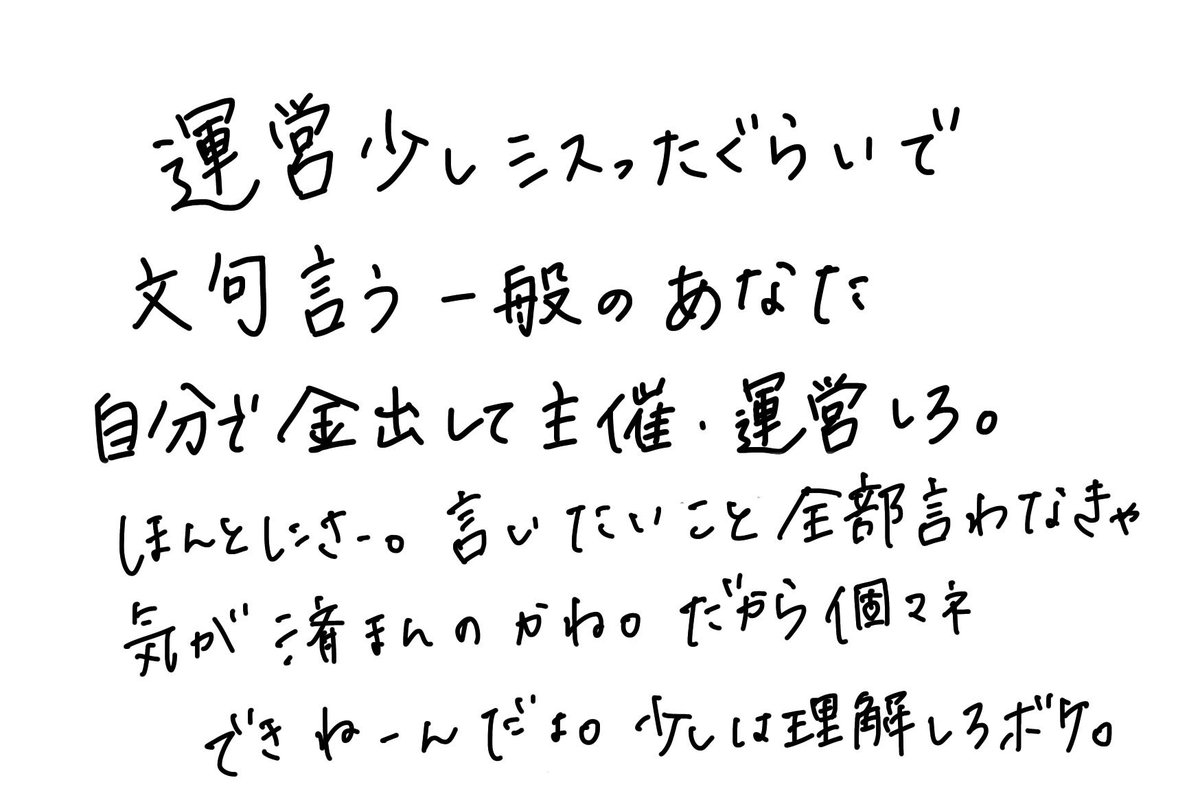 運営少しミスったぐらいで
文句言う一般のあなた
自分で金出して主催・運営しろ。
ほんとにさー。言いたいこと全部言わなきゃ
気が済まんのかね。だから個マネ
できねーんだよ。少しは理解しろボケ。